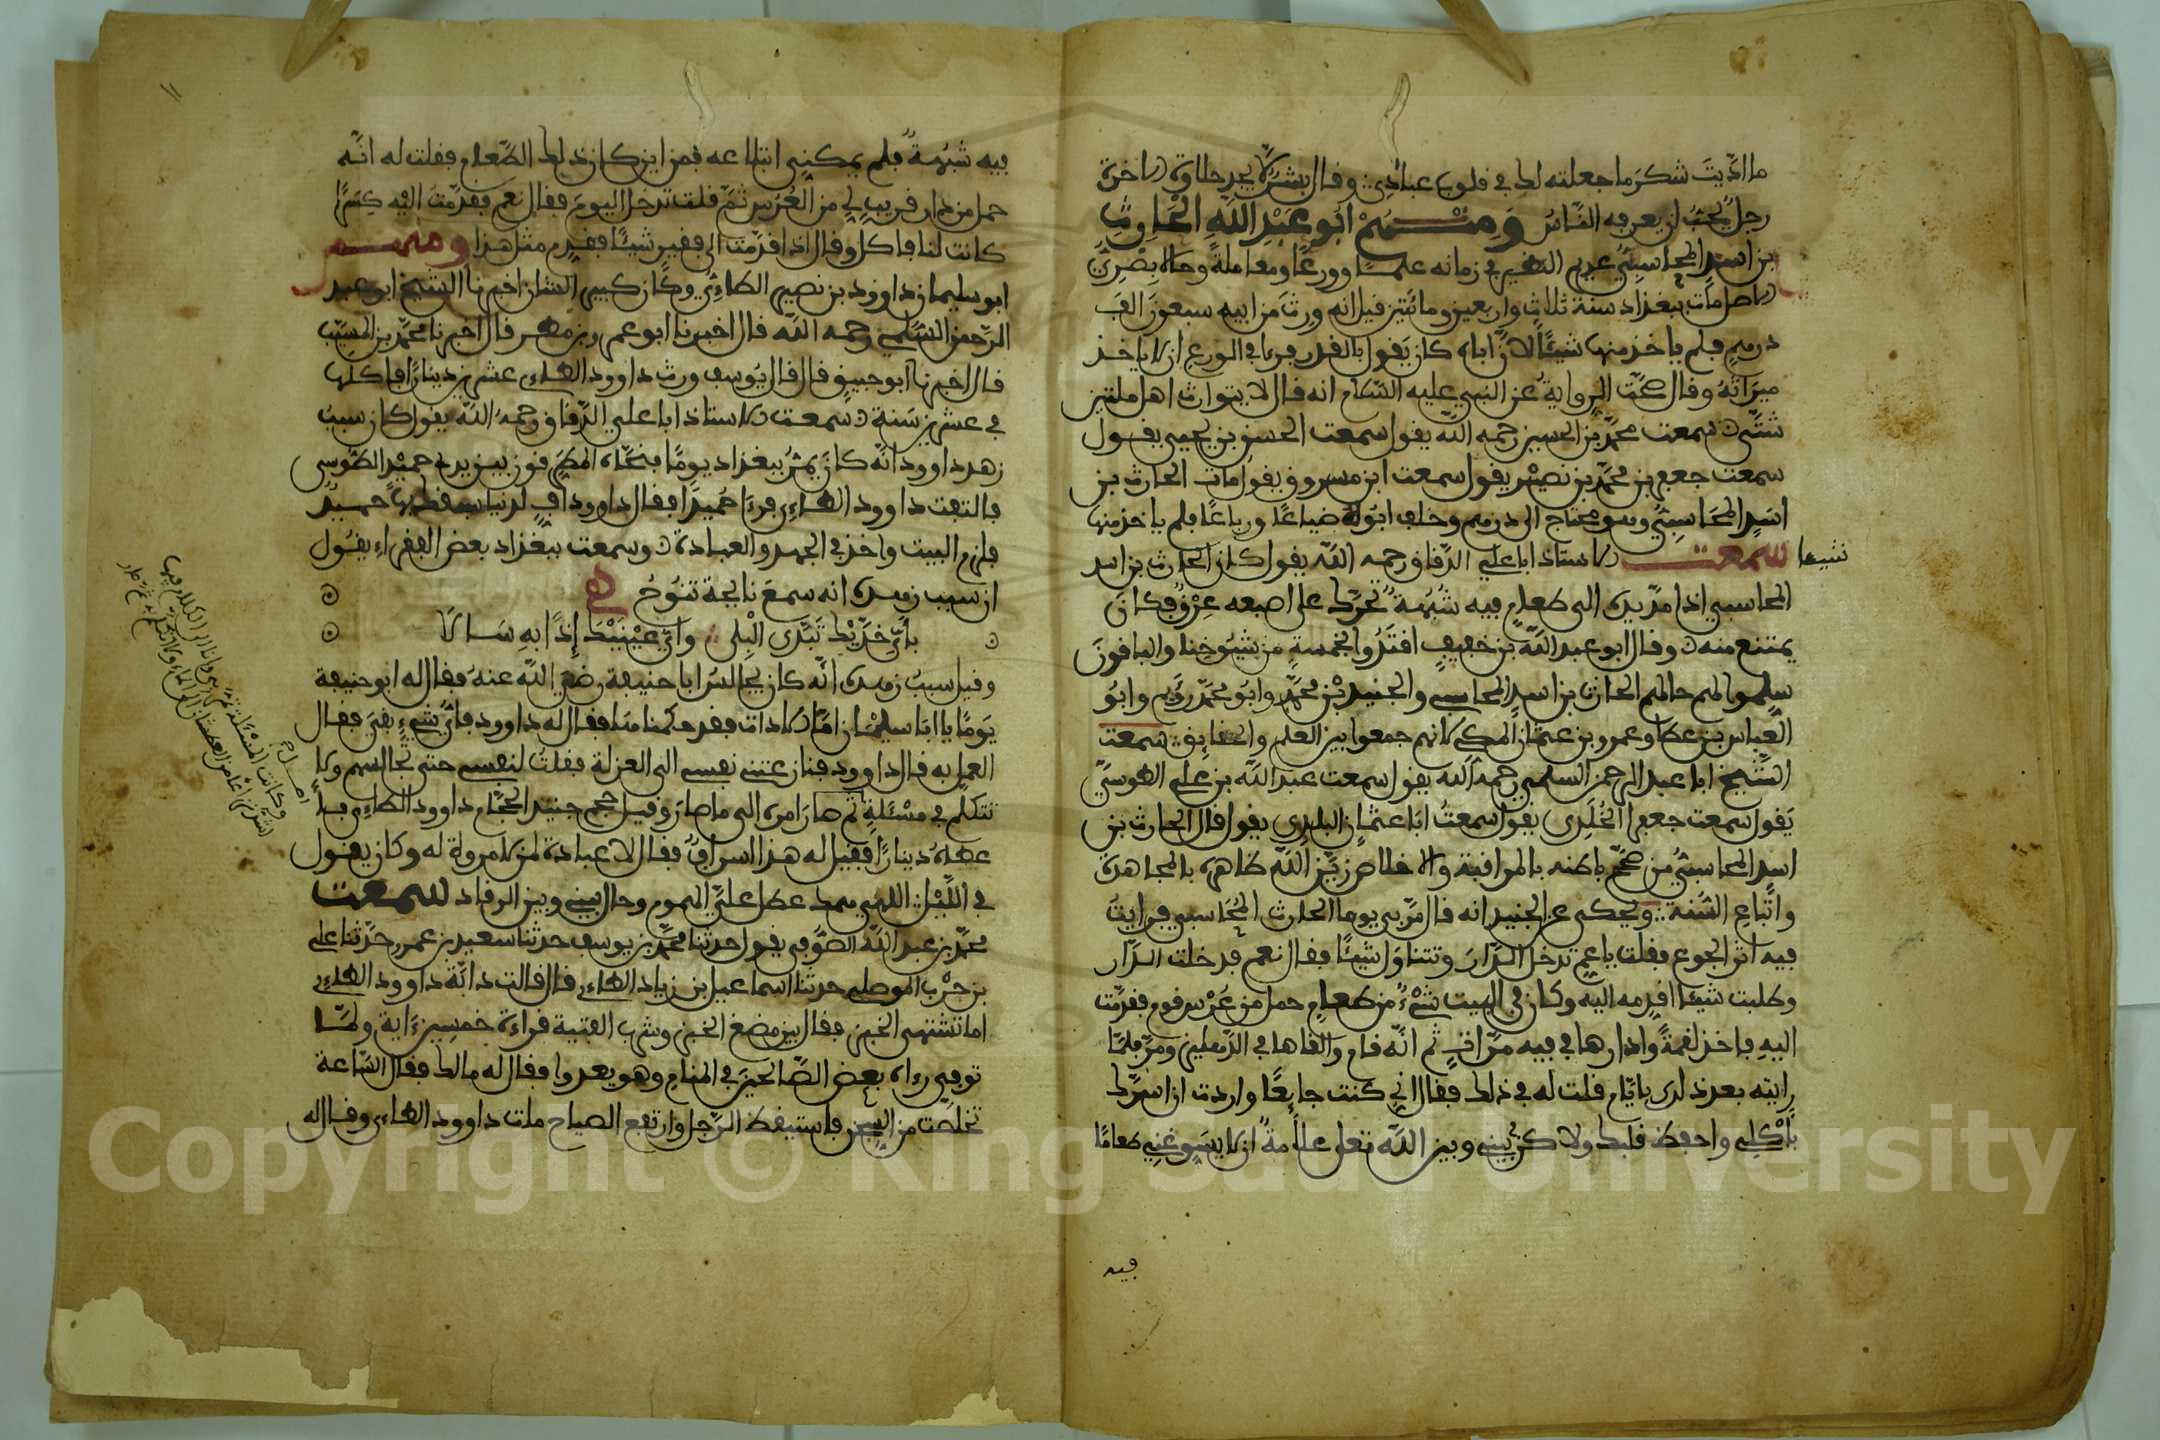 ما اديت شكر ما جعلته لك في قلوب عبادي وقال بشر لا يجد حلاوة الاخرة
رجل يحب ان يعرفه الناس ومنهم ابو عبد الله الحارث
بن اسد المحاسبي عديم النظير في زمانه علما وورعا ومعاملة وحالا بصري
الاصل مات ببغداد سنة ثلاث واربعين ومائتين قيل انه ورث من ابيه سبعون الف
درهم فلم ياخذ منها شيئا لان اباه كان يقول بالقدر فرءا في الورع ان لا ياخذ
ميراثه وقال صحت الرواية عن النبي عليه السلام انه قال لا يتوارث اهل ملتين
شتى سمعت محمد بن الحسين رحمه الله يقول سمعت الحسين بن يحيى يقول
سمعت جعفر بن محمد بن نصير يقول سمعت ابن مسروق يقول مات الحارث بن
اسد المحاسبي وهو محتاج الى درهم وخلف ابوه ضياعا ورباعا فلم ياخذ منها
شيئا
سمعت الاستاذ ابا علي الدقاق رحمه الله يقول كان الحارث بن اسد
المحاسبي اذا مد يده الى طعام فيه شبهة تحرك على اصبعه عرق فكان
يمتنع منه وقال ابو عبد الله بن خفيف اقتدوا بخمسة من شيوخنا والباقون
سلموا لهم حالهم الحارث بن اسد المحاسبي والجنيد بن محمد وابو محمد رويم وابو
العباس بن عطا وعمرو بن عثمان المكي لانهم جمعوا بين العلم والحقايق سمعت
الشيخ ابا عبد الرحمن السلمي رحمه الله يقول سمعت عبد الله بن علي الطوسي
يقول سمعت جعفرا الخلدي يقول سمعت ابا عثمان البلدي يقول قال الحارث بن
اسد المحاسبي من صحح باطنه بالمراقبة والاخلاص زين الله ظاهره بالمجاهدة
واتباع السنة ويحكى عن الجنيد انه قال مر بي يوما الحارث المحاسبي فرايت
فيه اثر الجوع فقلت يا عم تدخل الدار وتتناول شيئا فقال نعم فدخلت الدار
وطلبت شيئا اقدمه اليه وكان في البيت شيء من طعام حمل من عرس قوم فقدمت
اليه فاخذ لقمة وادارها في فيه مرات ثم انه قام والقاها في الدهليز ومر فلما
رايته بعد ذلك بايام قلت له في ذلك فقال اني كنت جايعا واردت ان اسرك
باكلي واحفظ قلبك ولاكن بيني وبين الله تعلى علامة ان لا يسوغني طعاما
فيه
فيه شبهة فلم يمكني ابتلاعه فمن اين كان ذلك الطعام فقلت له انه
حمل من دار قريب لي من العرس ثم قلت تدخل اليوم فقال نعم فقدمت اليه كسرا
كانت لنا فاكل وقال اذا قدمت الى فقير شيئا فقدم مثل هذا ومنهم
ابو سليمان داوود بن نصير الطاءي وكان كبير الشان اخبرنا الشيخ ابو عبد
الرحمن السلمي رحمه الله قال اخبرنا ابو عمرو بن مطر قال اخبرنا محمد بن المسيب
قال اخبرنا ابو خبيق قال قال يوسف ورث داوود الطاءي عشرين دينارا فاكلها
في عشرين سنة سمعت الاستاذ ابا علي الدقاق رحمه الله يقول كان سبب
زهد داوود انه كان يمر ببغداد يوما فنحاه المطرقون بين يدي حميد الطوسي
فالتفت داوود الطاءي فرءا حميدا فقال داوود اف لدنيا سبقك بها حميد
فلزم البيت واخذ في الجهد والعبادة وسمعت ببغداد بعض الفقراء يقول
ان سبب زهده انه سمع نايحة تنوح
باي خديك تبدى البلى واي عينيك إذا به سالا
وقيل سبب زهده انه كان يجالس ابا حنيفة رضي الله عنه فقال له ابو حنيفة
يوما يا ابا سليمان اما الادات فقد حكمناها فقال له داوود فاي شيء بقي فقال
العمل به قال داوود فنازعتني نفسي الى العزلة فقلت لنفسي حتى تجالسهم ولا
تتكلم في مسئلة ثم صار امره الى ما صار وقيل حجم جنيد الحجام داوود الطاءي
عطاه دينارا فقيل له هذا اسراف فقال لا عبادة لمن لا مروة له وكان يقول
في الليل الاهي همك عطل علي الهموم وحال بيني وبين الرقاد سمعت
محمد بن عبد الله الصوفي يقول حدثنا محمد بن يوسف حدثنا سعيد بن عمر حدثنا علي
بن حرب الموصلي حدثنا اسماعيل بن زياد الطاءي قال قالت داية داوود الطاءي
اما تشتهي الخبز فقال بين مضغ الخبز وشرب الفتية قراءة خمسين ءاية ولما
توفي رءاه بعض الصالحين في المنام وهو يعدوا فقال له مالك فقال الساعة
تخلصت من السجن فاستيقظ الرجل وارتفع الصياح مات داوود الطاءي وقال له